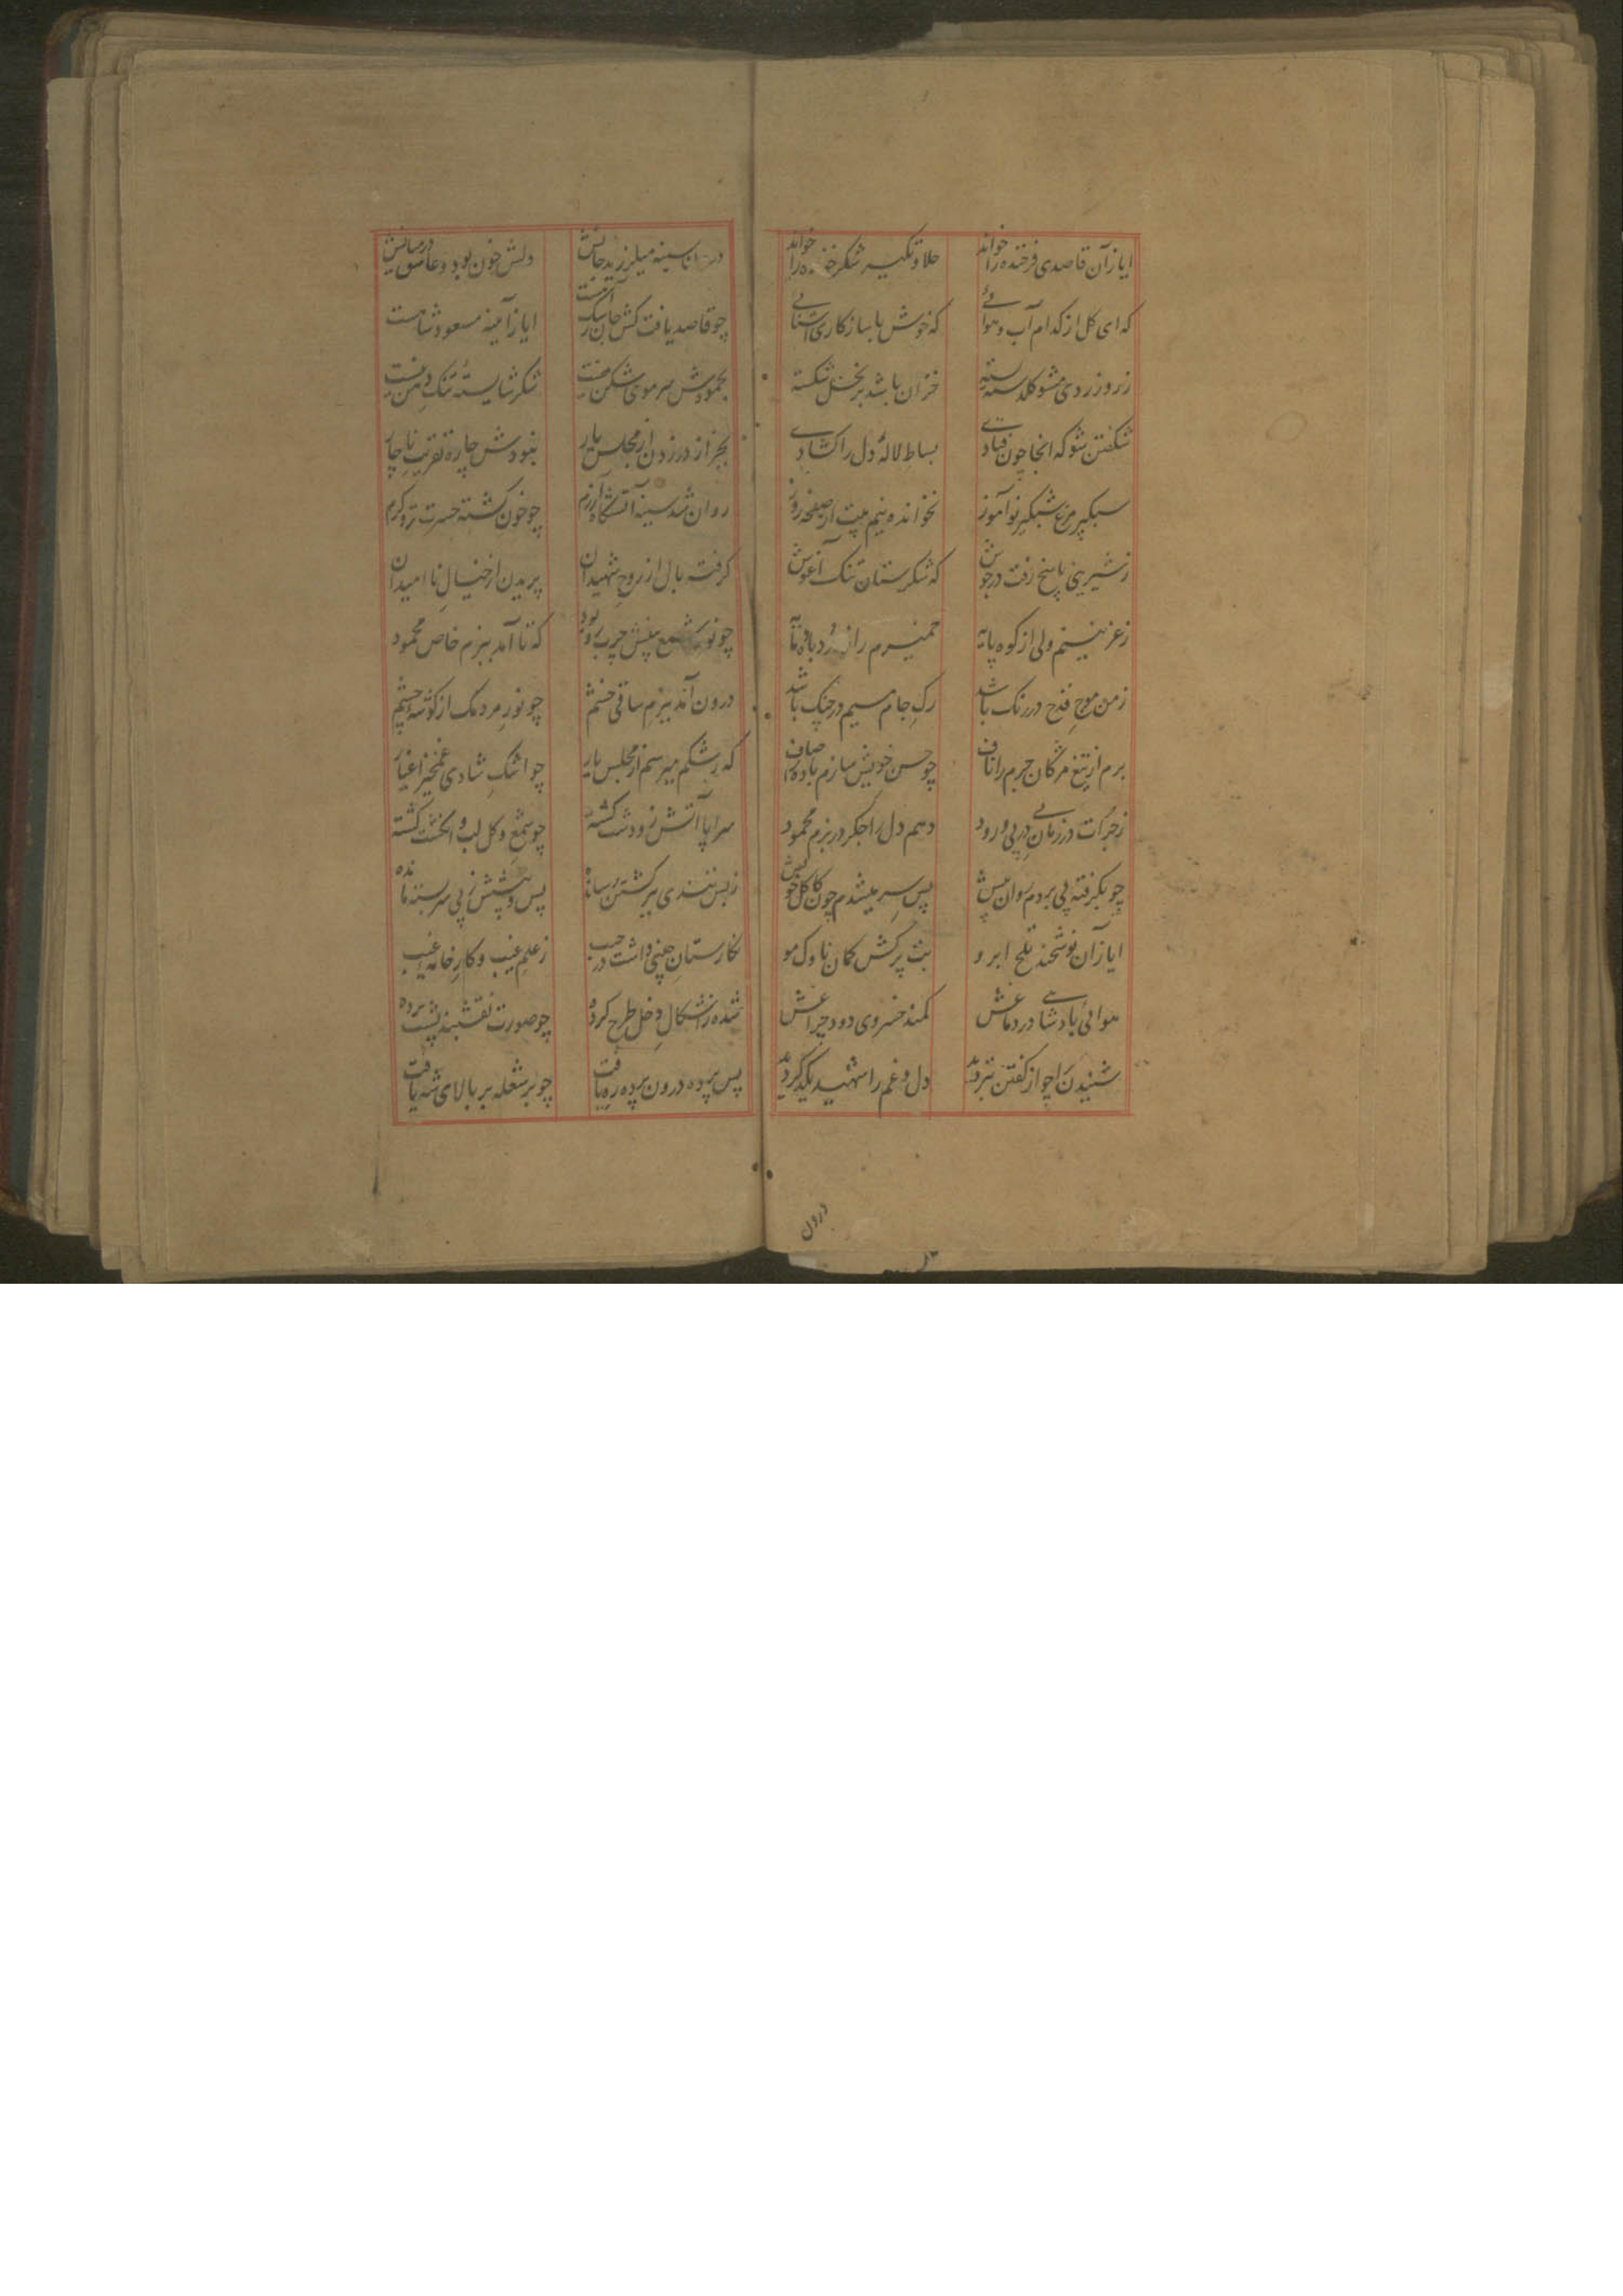 ایاز آن قاصدی فرخنده را خواند حلاوتگیر شکر را خواند
که ای گل از کدام آب و هوائی که خوش با سازگاری آشنائی
ز روز زردی مشو گلدسته بسته خزان باشد بر نخل شکسته
شگفتن شو که اینجا چون فتادی بساط لالهٔ دل را گشادی
سبکپر مرغ شبگیر نوآموز نخوانده نیم بیت از صفحهٔ روز
ز شیرینی پاسخ رفت در جوش که شکرستان تنگ آغوش
ز غزنینم ولی از کوه پایه خمیرم را باده مایه
ز من موج قدح در رنگ باشد رگ جام سیم در چنگ باشد
برم از تیغ مژگان جرم را ناف چو حسن خویش سازم باده را صاف
ز جرأت در زمانی در پی و رود دهم دل را جگر در بزم محمود
چو بگرفته پی بردم سوان پیش پس سر میشدم چون کاکل خویش
ایاز آن نوشخند تلخ ابرو بت پرکش کمان ناوک مو
هوائی پادشاهی در دماغش کمند خسروی دود چراغش
شنیدن را چو از گفتن بتر دید دل و غم را شهید یکدگر دید
درون
در سینه میلرزید جانش دلش خون بود و عاشق در میانش
چو قاصد یافت کش جان سبک رفت ایاز آمینه مسعود شاهست
بمحمودش سر موی شکن نیست شکر شایستهٔ تنگ دهن نیست
بجز از در زدن از مجلس یار نبودش چاره تقریب ناچار
روان شد سینه آتشگاه آزرم چو خون کشته حسرت تر و گرم
گرفته بال از روح شهیدان پریدن از خیال ناامیدان
چو نور شمع پیش چرب رو بود که تا آمد ببزم خاص محمود
درون آمد ببزم ساقی خشم چو نور مردمک از گوشه چشم
که رشکم میرسم از مجلس یار چو اشک شادی غمخیز اغیار
سراپا آتش زودشت گشته چو شمع و گل لب و انگشت گشته
ز بس تندی برگشتن رسانده پس و پیشش ز پی سر بسته مانده
نگارستان چینی داشت در جیب ز علم غیب و کارخانه غیب
شده ز اشکال دخل طرح کرده چو صورت نقشبند پشت پرده
پس پرده درون پرده ره یافت چو بر شعله بر بالای شه یافت